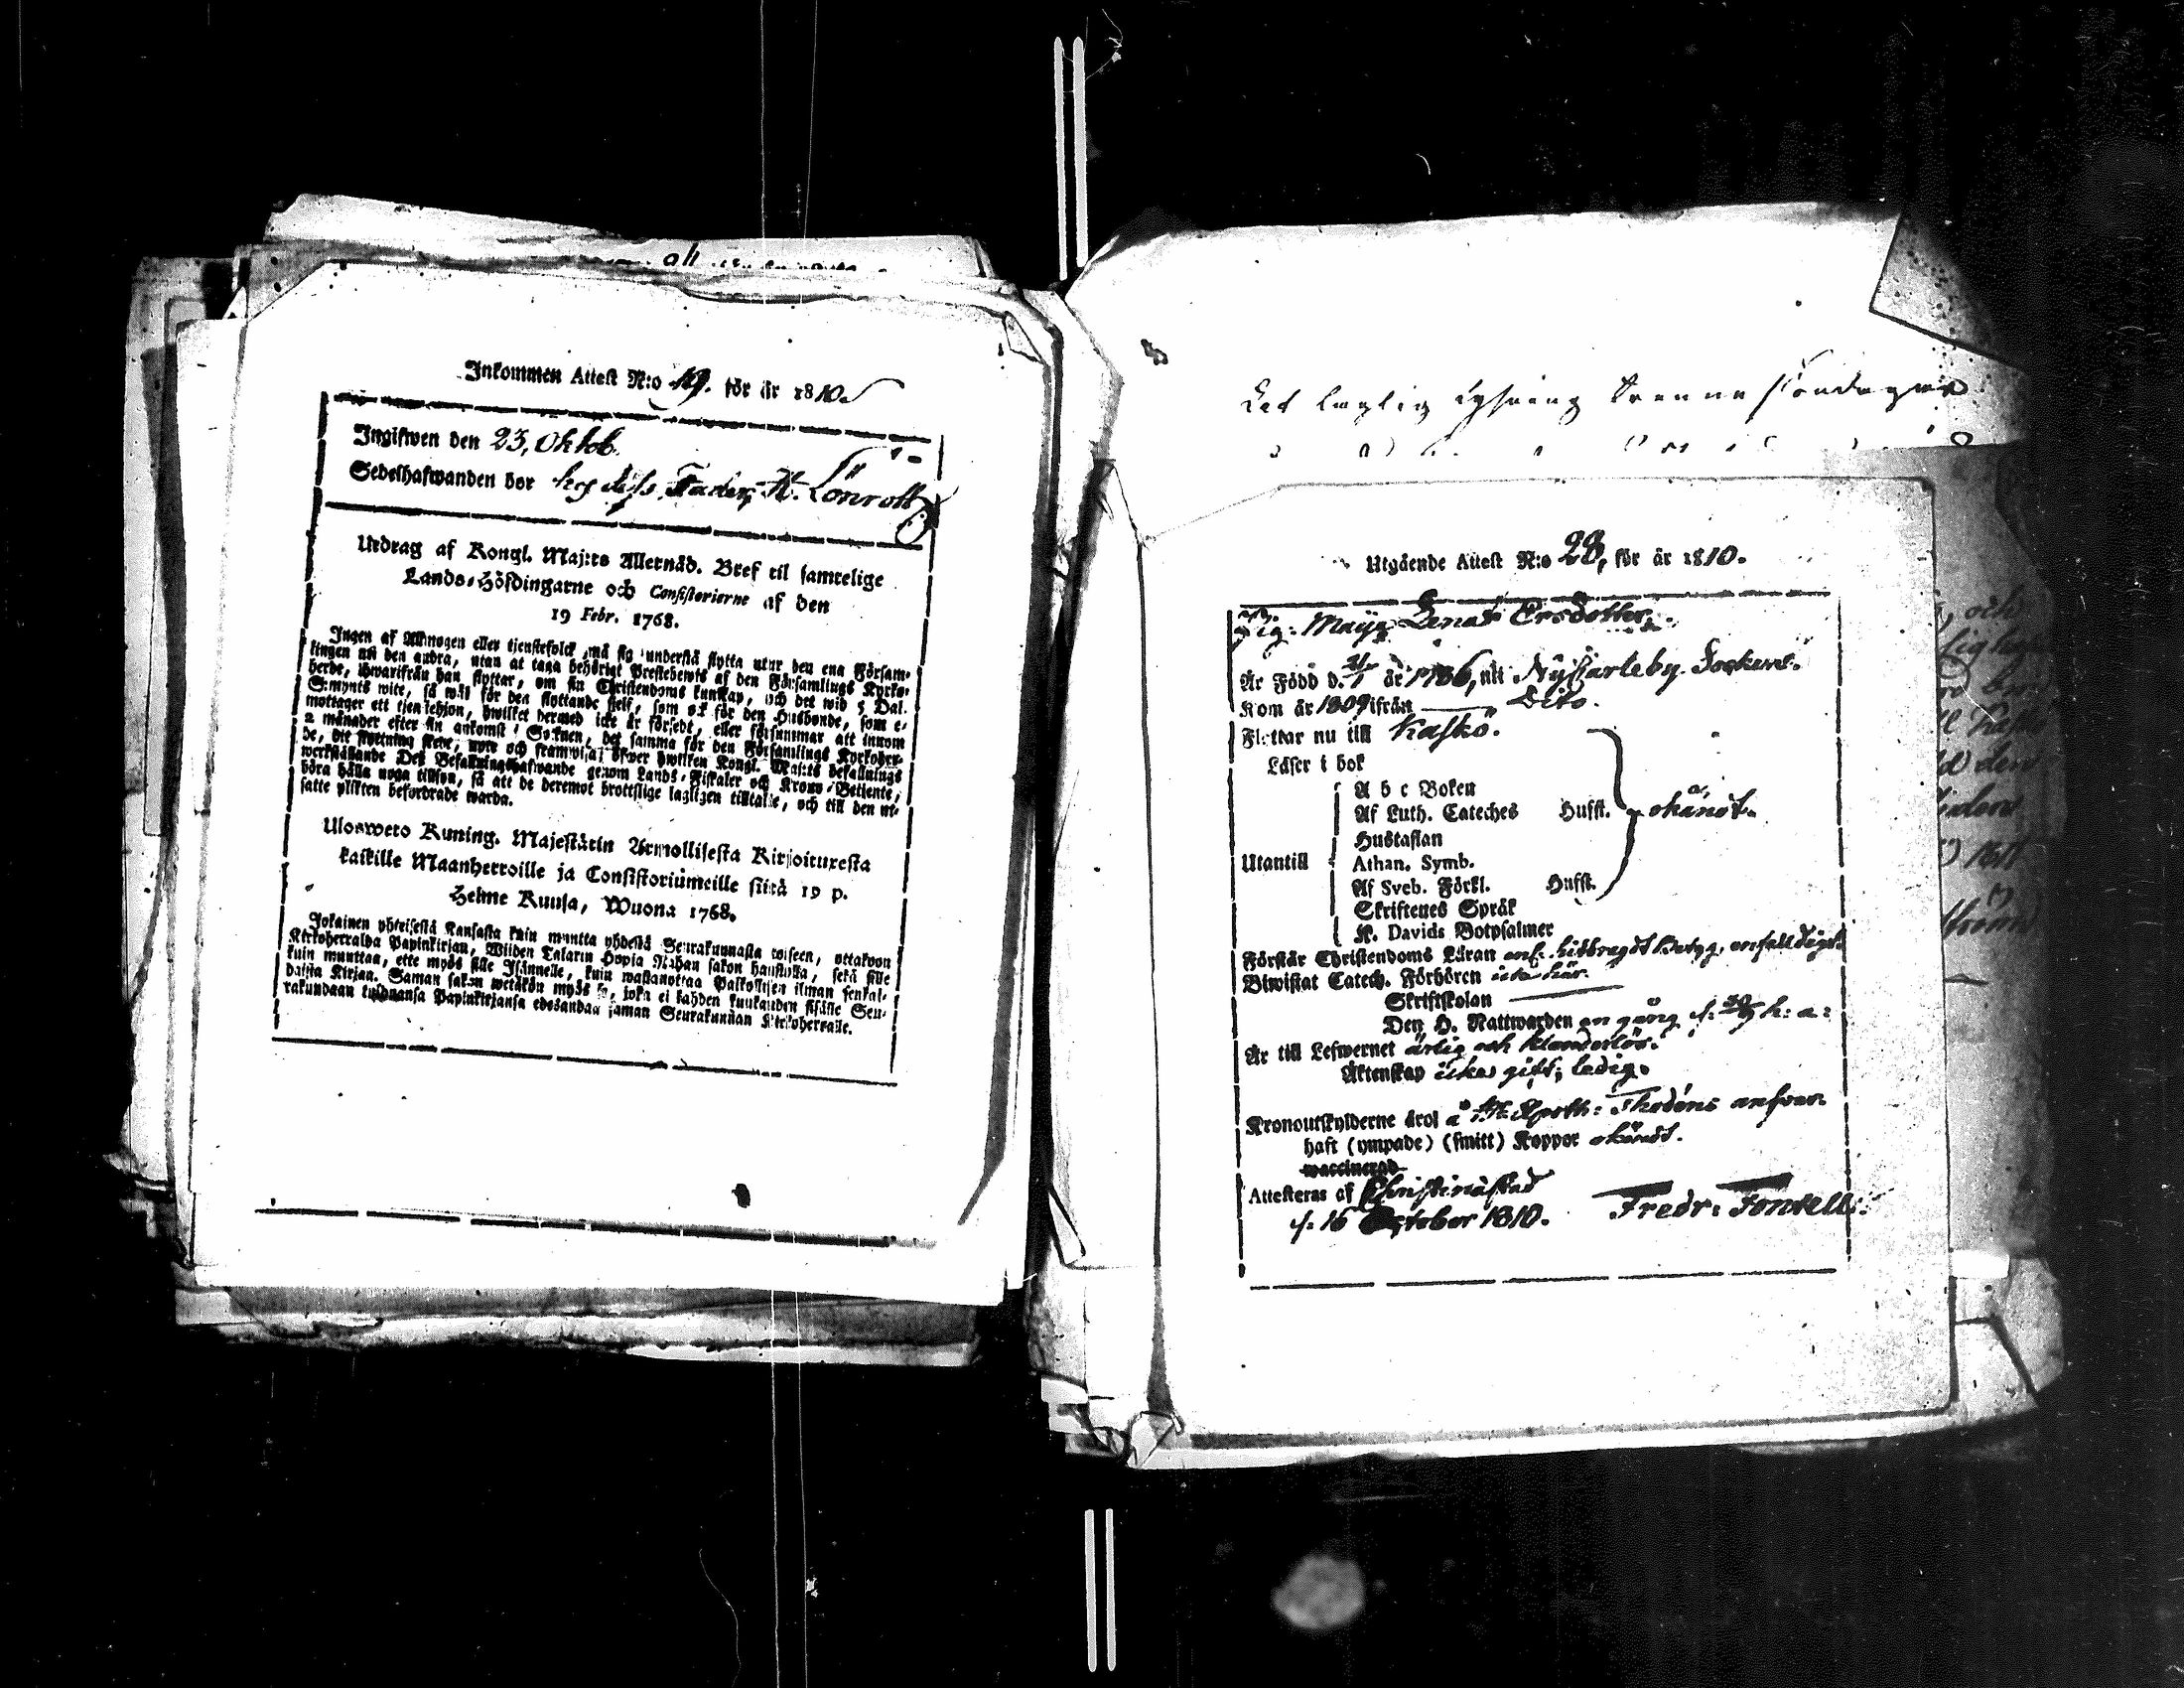 Inkommen Attest N:o 19. för år 1810.
Ingifwen den 23, Oktob.
Sedelhafwanden bor hos dess Fader, H. Lönrott
Utdrag af Kongl. Maj:ts Allernåd. Bref til samtelige
Lands-Höfdingarne och Consistorierne af den
19 Febr. 1768.
Ingen af Allmogen eller tjenstefolck må sig understå flytta utur den ena Försam-
lingen uti den andra, utan at taga behörigt Prestebewis af den Församlings Kyrko-
herde, hwarifrån han flyttar, om sin Christendoms kunskap, och det wid 5 Dal.
S:mynts wite, så wäl för den flyttande sjelf, som ock för den Husbonde, som e-
mottager ett tjenstehjon, hwilket hermed icke är försedt, eller försummar att innom
2 månader efter sin ankomst i Socknen, det samma för den Församlings Kyrkoher-
de, dit flyttning skett, upte och framwisa; öfwer hwilken Kongl. Maj:ts befallnings
werkställande Des Befallningshafwande genom Lands-Fiskaler och Krono-Betjente,
böra hålla noga tillsyn, så att de deremot brottslige lagligen tilltalte, och till den ut-
satte plikten befordrade warda.
Ulosweto Kuning. Majestätin Armollisesta Kirjoituxesta
kaikille Maanherroille ja Consistoriumeille siitä 19 p.
Helme Kuusa, Wuona 1768.
Jokainen yhteisestä Kansasta kuin muutta yhdestä Seurakunnasta toiseen, ottakoon
Kirkoherralda Papinkirjan, Wiiden Talarin Hopia Rahan sakon haastolla, sekä sille
kuin muuttaa, ette myös sille Isännelle, kuin wastanottaa Palkollisen ilman senkal-
daista Kirjan. Saman sakon wetäkön myös se, joka ei kahden kuukauden sisälle Seu-
rakundaan tuldnansa Papinkirjansa edesandaa saman Seurakunnan Kirkoherralle.
Det laglig Lysning trenne söndagar
Utgående Attest N:o 28, för år 1810.
Pig: Maja Lena Ersdotter
Är Född d. år 1786, uti Nykarleby Sockens.
Kom år 1809 ifrån Dito.
Flyttar nu till Kaskö.
Läser i bok
A b c Boken
Af Luth. Cateches Hufst. okändt.
Hustaflan
Utantill Athan. Symb.
Af Sveb. Förkl. Hufst.
Skriftenes Språk
K. Davids Botpsalmer
Förstår Christendoms Läran enl. hitbragdt Betyg, enfalldigt.
Biwistat Catech. Förhören icke här.
Skriftskolan
Den H. Nattwarden en gång h: a:
Är till Lefwernet ärlig och klanderlös.
Äktenskap ickes gift; ledig.
Kronoutskylderne äro å Apoth: Thodéns answar.
haft (ympade) (smitt) Koppor okändt.
waccinerad
Attesteras af Christinæstad
d. 16 October 1810. Fredr: Fontell: